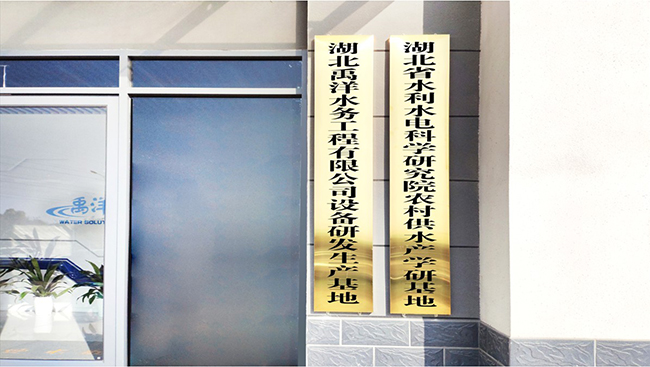 湖北禹洋水务工程有限公司设备研发生产基地
湖北省水利水电科学研究院农村供水产学研基地
禹洋
WATER SOLUT